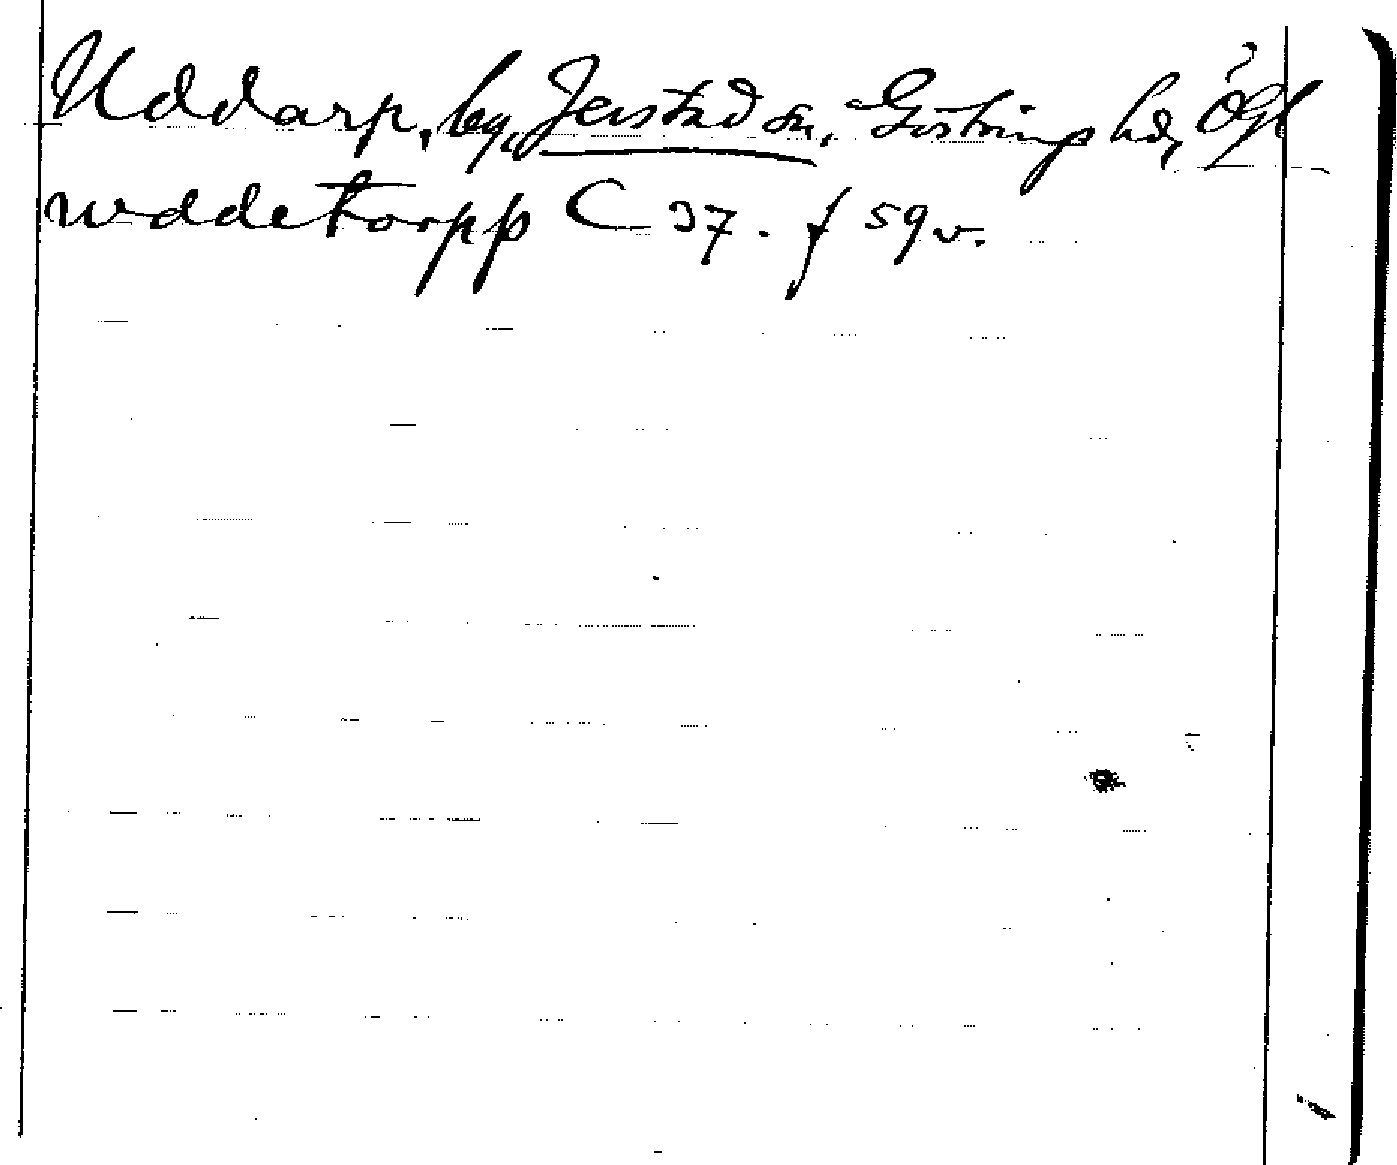 Uddarp, by, Jerstad sn, Göstrings hd, Ögl
wddetorpp C 37. f 59 v.